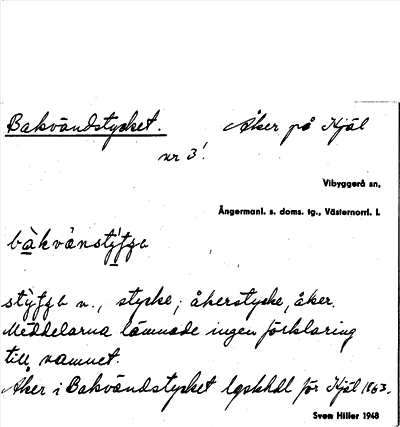 Bakvändstycket. Åker på Hjäl
nr 3!
Vibyggerå sn,
Ångermanl. s. doms. tg., Västernorrl. l.
bàkvänsty̆tja
stỳtja n., stycke; åkerstycke, åker.
Meddelarna lämnade ingen förklaring
till namnet.
Åker i Bakvändstycket för Hjäl 1863.
Sven Hiller 1948